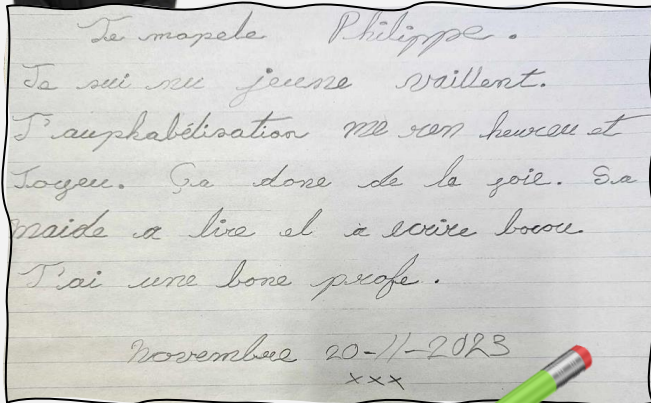 Je mapele Philippe.
Je sui nu jeune vaillent.
J'auphabélisation me ren heureu et
Joyeu. Ça done de la joie. Sa
maide a lire et a ecrire bocou
J'ai une bone profe.
Novembre 20-11-2023
xxx